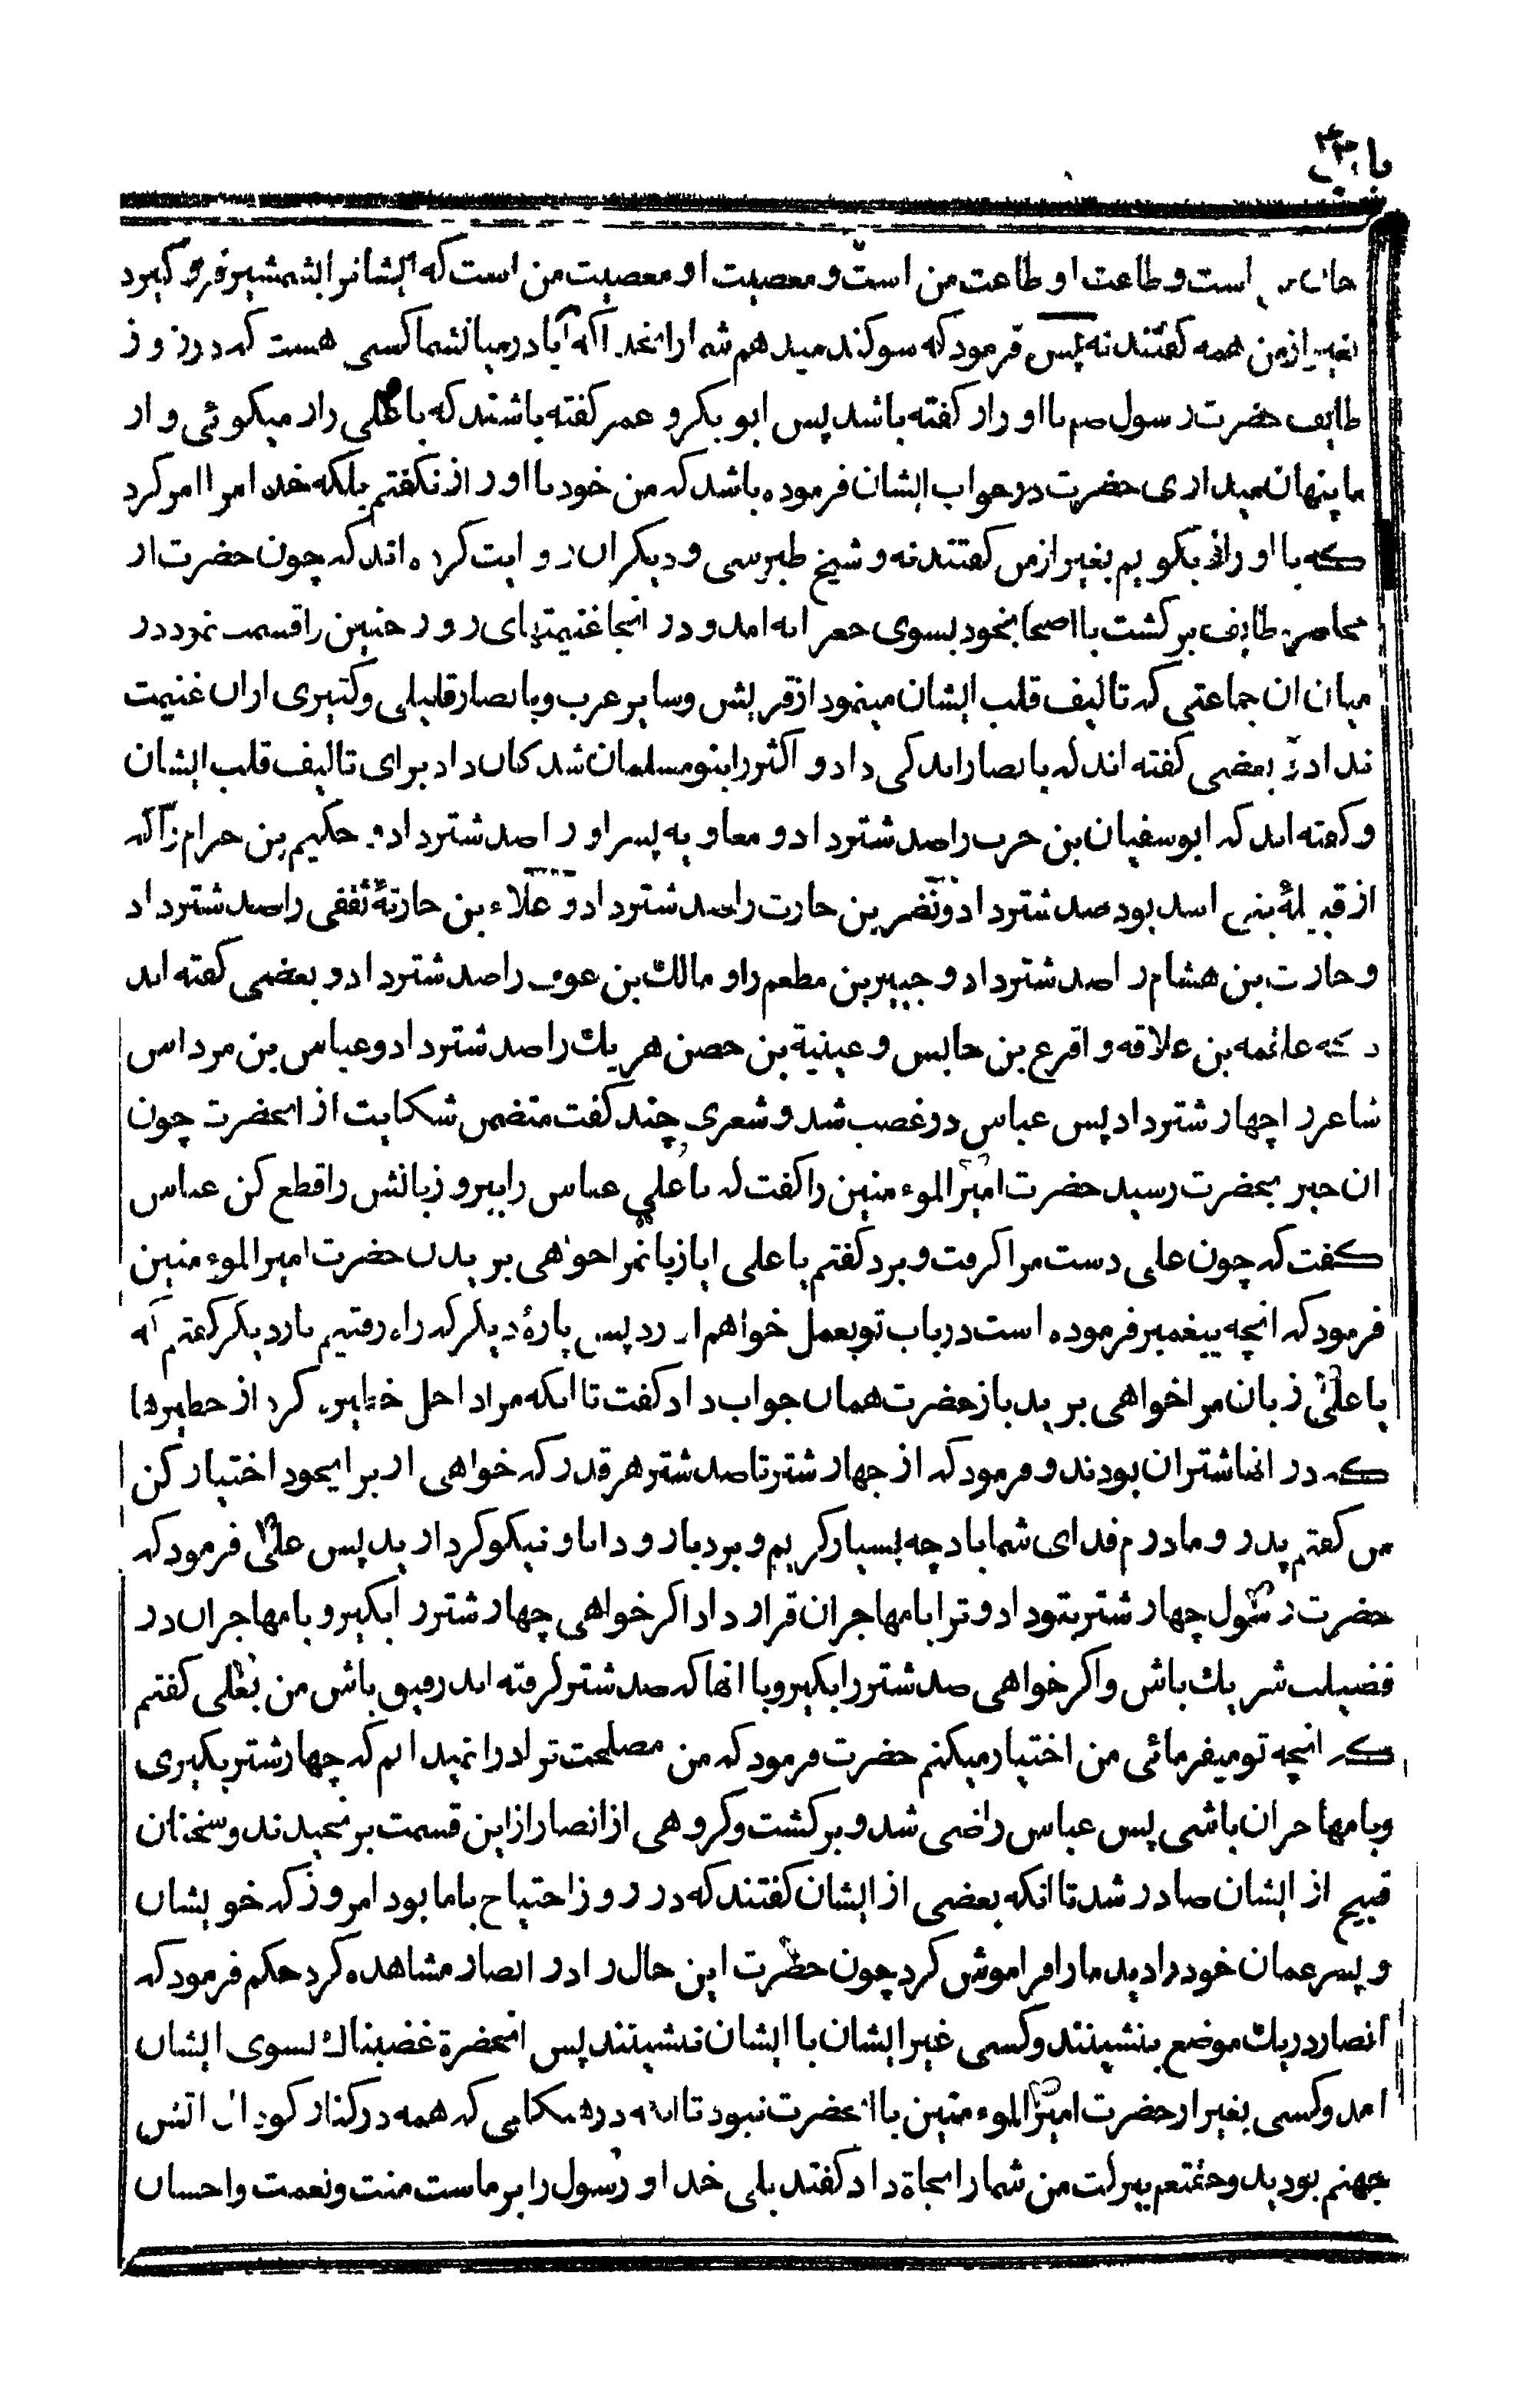 است و طاعت او طاعت من است و معصیت او معصیت من است که ایشانرا بشمشیر فرو گیرد
بغیر از من همه گفتند نه پس فرمود که سوکند میدهم شما را بخدا که آیا در میان شما کسی هست که در روز
طایف حضرت رسول صم با او راز کفته باشد پس ابو بکر و عمر کفته باشند که با علی راز میکوئی و از
ما پنهان میداری حضرت در جواب ایشان فرموده باشد که من خود با او راز نکفتم بلکه خدا مرا امر کرد
که با او راز بکویم بغیر از من کفتند نه و شیخ طبرسی و دیکران روایت کرده اند که چون حضرت از
محاصره طایف برکشت با اصحاب خود بسوی جعرانه امد و در انجا غنیمتهای روز حنین را قسمت نمود در
میان ان جماعتی که تالیف قلب ایشان مینمود از قریش و سایر عرب و بانصار قلیلی و کثیری ازان غنیمت
نداد و بعضی کفته اند که بانصار اندکی داد و اکثر را بنو مسلمان شدکان داد برای تالیف قلب ایشان
و کفته اند که ابو سفیان بن حرب را صد شتر داد و معاویه پسر او را صد شتر داد و حکیم بن حرام را که
از قبیلهٔ بنی اسد بود صد شتر داد و نضر بن حارث را صد شتر داد و علاء بن حارثهٔ ثقفی را صد شتر داد
و حارث بن هشام را صد شتر داد و جبیر بن مطعم را و مالک بن عوف را صد شتر داد و بعضی کفته اند
که علقمه بن علاقه و اقرع بن حابس و عینیة بن حصن هر یک را صد شتر داد و عباس بن مرداس
شاعر را چهار شتر داد پس عباس در غضب شد و شعری چند کفت متضمن شکایت از انحضرت چون
ان خبر بحضرت رسید حضرت امیر الموءمنین را کفت که یا علی عباس را ببر و زبانش را قطع کن عباس
کفت که چون علی دست مرا کرفت و برد کفتم یا علی ایا زبانم را خواهی برید حضرت امیر الموءمنین
فرمود که انچه پیغمبر فرموده است در باب تو بعمل خواهم اورد پس پارهٔ دیکر که راه رفتیم بار دیکر کفتم که
یا علی زبان مرا خواهی برید باز حضرت همان جواب داد کفت تا انکه مرا داخل حظیره کرد از حظیرها
که در انها شتران بودند و فرمود که از چهار شتر تا صد شتر هر قدر که خواهی از برای خود اختیار کن
من کفتم پدر و مادرم فدای شما باد چه بسیار کریم و بردبار و دانا و نیکو کردارید پس علی فرمود که
حضرت رسول چهار شتر بتو داد و ترا با مهاجران قرار داد اکر خواهی چهار شتر را بکیر و با مهاجران در
فضیلت شریک باش و اکر خواهی صد شتر را بکیر و با انها که صد شتر کرفته اند رفیق باش من بعلی کفتم
که انچه تو میفرمائی من اختیار میکنم حضرت فرمود که من مصلحت ترا در ان میدانم که چهار شتر بکیری
و با مهاجران باشی پس عباس راضی شد و برکشت و کروهی از انصار از این قسمت برنجیدند و سخنان
قبیح از ایشان صادر شد تا انکه بعضی از ایشان کفتند که در روز احتیاج با ما بود امروز که خویشان
و پسر عمان خود را دید ما را فراموش کرد چون حضرت این حال را در انصار مشاهده کرد حکم فرمود که
انصار در یک موضع بنشینند و کسی غیر ایشان با ایشان ننشینند پس انحضرة غضبناک بسوی ایشان
امد و کسی بغیر از حضرت امیر الموءمنین با انحضرت نبود تا انکه در هنکامی که همه در کنار کودال اتش
جهنم بودید و حقتعم ببرکت من شما را نجاة داد کفتند بلی خدا و رسول را بر ماست منت و نعمت و احسان